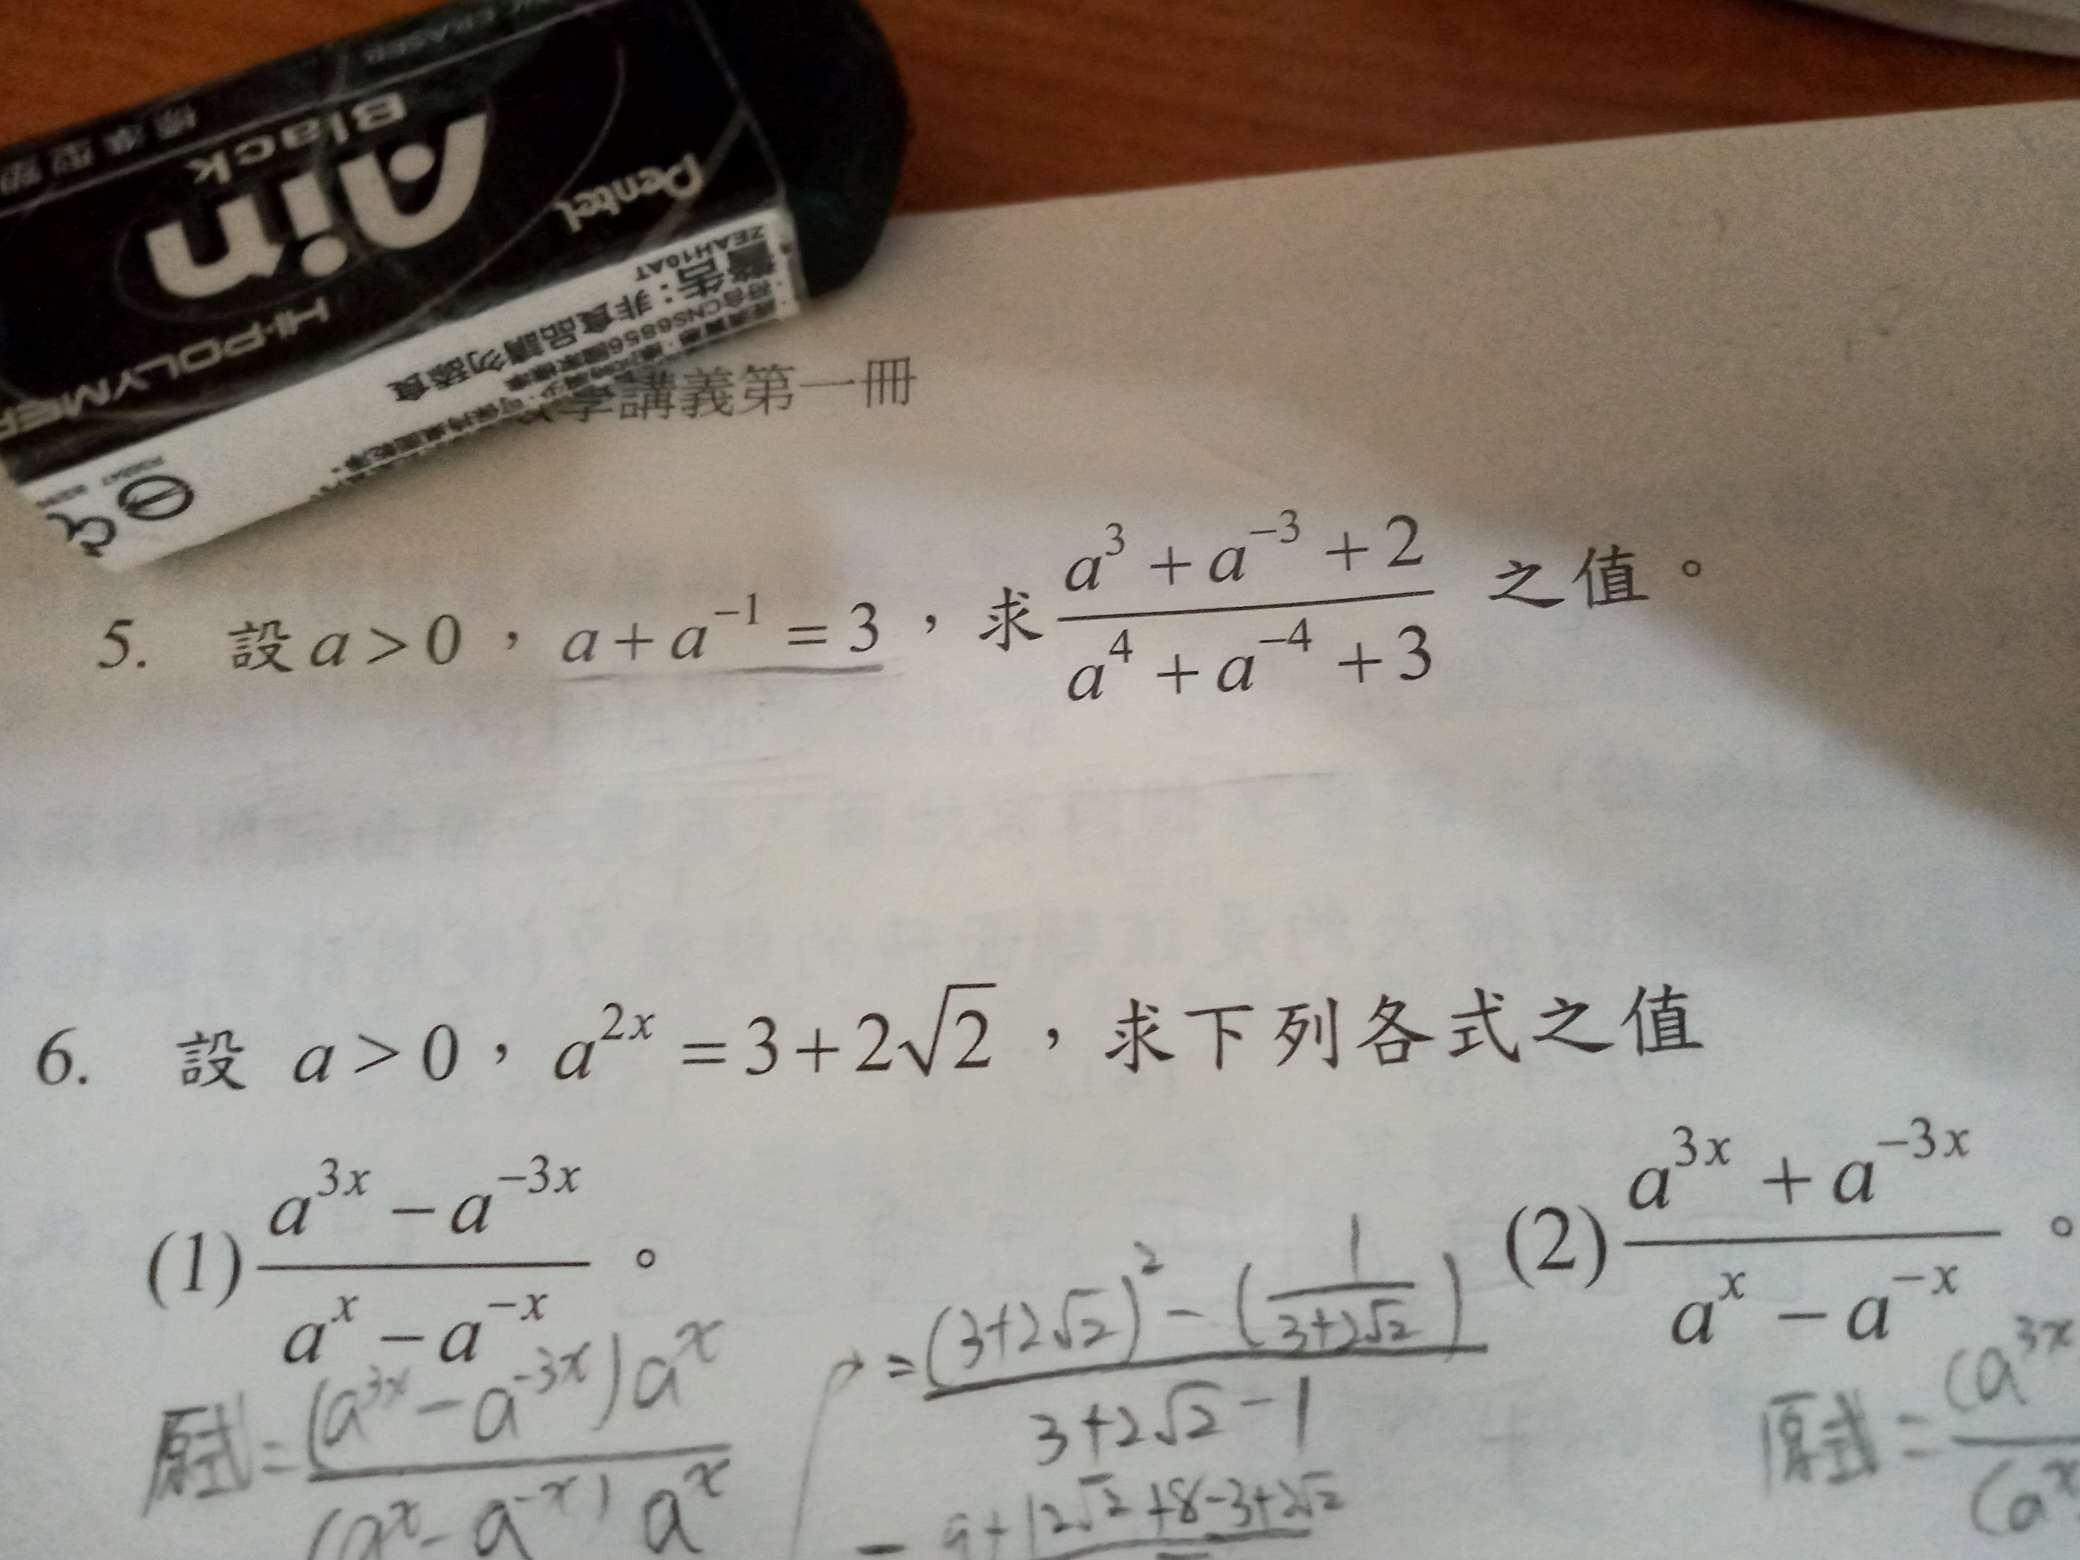 Black
Ain
Pentel
HI-POLYMER
ZEAH10AT
警告：非食品請勿舔食
學講義第一冊
5. 設 a > 0 ， a + a^{-1} = 3 ，求 \frac{a^3 + a^{-3} + 2}{a^4 + a^{-4} + 3} 之值。
6. 設 a > 0 ， a^{2x} = 3 + 2\sqrt{2} ，求下列各式之值
(1) \frac{a^{3x} - a^{-3x}}{a^x - a^{-x}} 。
(2) \frac{a^{3x} + a^{-3x}}{a^x - a^{-x}} 。
原式 = \frac{(a^{3x} - a^{-3x}) a^x}{(a^x - a^{-x}) a^x}
→ = \frac{(3+2\sqrt{2})^2 - (\frac{1}{3+2\sqrt{2}})}{3+2\sqrt{2} - 1}
= 9 + 12\sqrt{2} + 8 - 3 + 2\sqrt{2}
原式 = \frac{(a^{3x}}{(a^x}